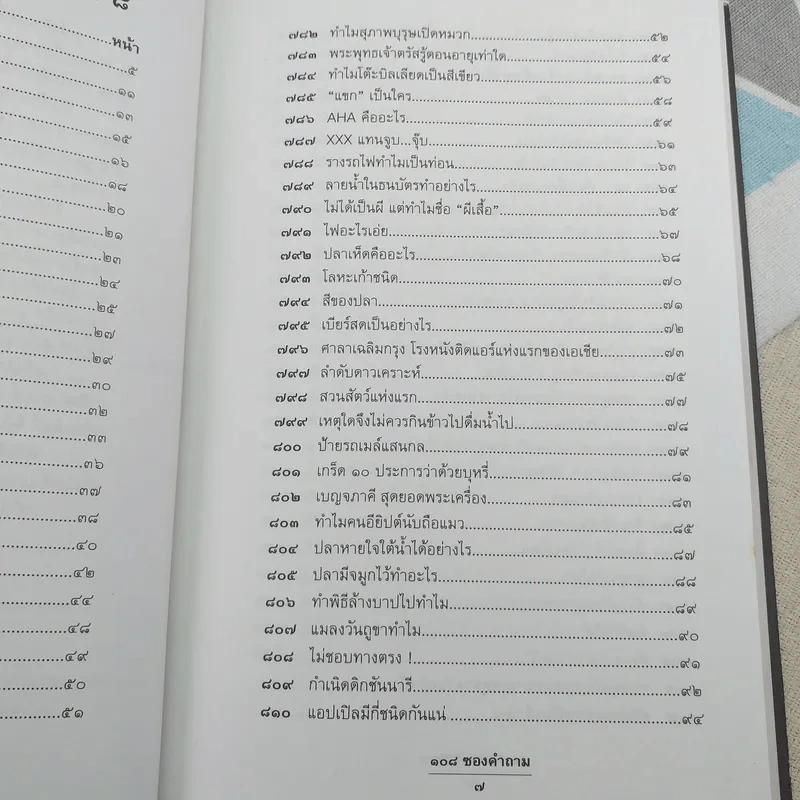 ๘
หน้า
๕
๑๑
๑๓
๑๕
๑๖
๑๘
๒๐
๒๑
๒๓
๒๔
๒๕
๒๗
๒๙
๓๐
๓๒
๓๓
๓๖
๓๗
๓๘
๔๐
๔๒
๔๔
๔๘
๔๙
๕๐
๕๑
๗๘๒ ทำไมสุภาพบุรุษเปิดหมวก ๕๒
๗๘๓ พระพุทธเจ้าตรัสรู้ตอนอายุเท่าใด ๕๔
๗๘๔ ทำไมโต๊ะบิลเลียดเป็นสีเขียว ๕๖
๗๘๕ “แขก” เป็นใคร ๕๘
๗๘๖ AHA คืออะไร ๕๙
๗๘๗ XXX แทนจูบ...จุ๊บ ๖๑
๗๘๘ รางรถไฟทำไมเป็นท่อน ๖๓
๗๘๙ ลายน้ำในธนบัตรทำอย่างไร ๖๔
๗๙๐ ไม่ได้เป็นผี แต่ทำไมชื่อ “ผีเสื้อ” ๖๕
๗๙๑ ไฟอะไรเอ่ย ๖๗
๗๙๒ ปลาเห็ดคืออะไร ๖๘
๗๙๓ โลหะเก้าชนิด ๗๐
๗๙๔ สีของปลา ๗๑
๗๙๕ เบียร์สดเป็นอย่างไร ๗๒
๗๙๖ ศาลาเฉลิมกรุง โรงหนังติดแอร์แห่งแรกของเอเชีย ๗๓
๗๙๗ ลำดับดาวเคราะห์ ๗๕
๗๙๘ สวนสัตว์แห่งแรก ๗๗
๗๙๙ เหตุใดจึงไม่ควรกินข้าวไปดื่มน้ำไป ๗๘
๘๐๐ ป้ายรถเมล์แสนกล ๗๙
๘๐๑ เกร็ด ๑๐ ประการว่าด้วยบุหรี่ ๘๑
๘๐๒ เบญจภาคี สุดยอดพระเครื่อง ๘๓
๘๐๓ ทำไมคนอียิปต์นับถือแมว ๘๕
๘๐๔ ปลาหายใจใต้น้ำได้อย่างไร ๘๗
๘๐๕ ปลามีจมูกไว้ทำอะไร ๘๘
๘๐๖ ทำพิธีล้างบาปไปทำไม ๘๙
๘๐๗ แมลงวันถูขาทำไม ๙๐
๘๐๘ ไม่ชอบทางตรง ! ๙๑
๘๐๙ กำเนิดดิกชันนารี ๙๒
๘๑๐ แอปเปิลมีกี่ชนิดกันแน่ ๙๔
๑๐๘ ซองคำถาม
๗